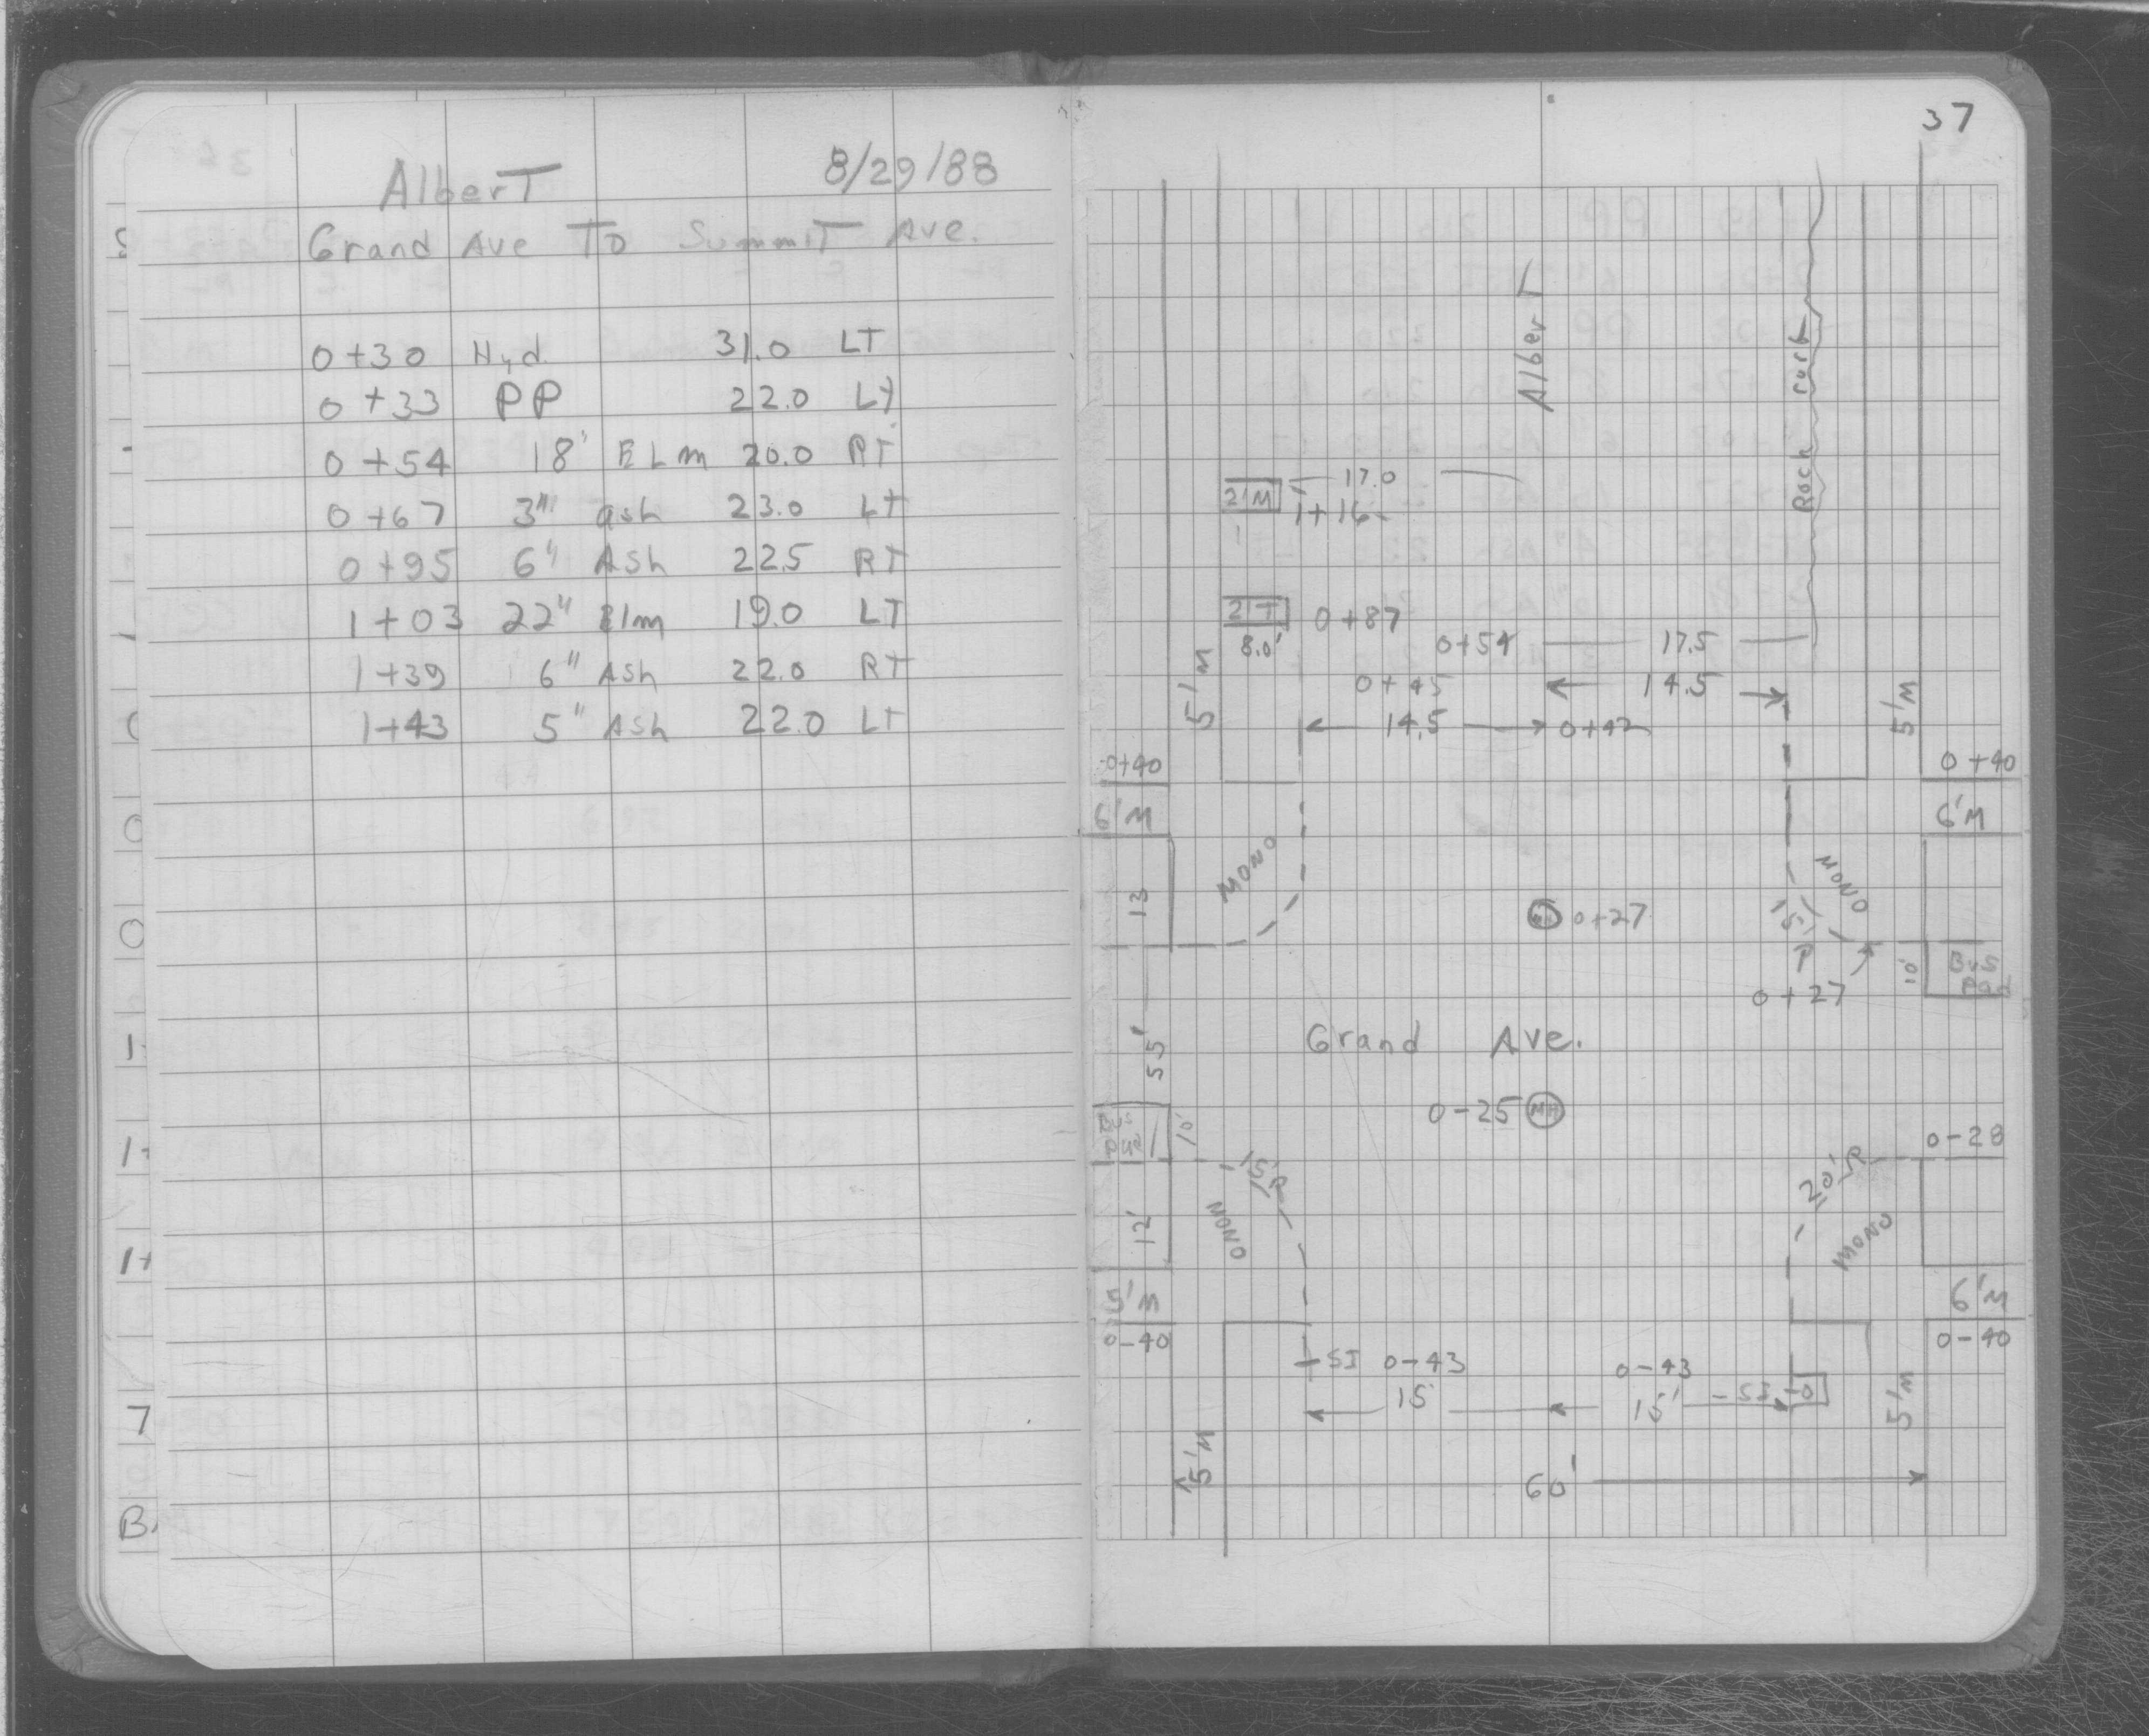 AlberT 8/29/88
Grand Ave To SummiT Ave.
0+30 Hyd. 31.0 LT
0+33 PP 22.0 LT
0+54 18" ELm 20.0 RT
0+67 3" ash 23.0 LT
0+95 6" Ash 22.5 RT
1+03 22" Elm 19.0 LT
1+39 6" Ash 22.0 RT
1+43 5" Ash 22.0 LT
37
AlberT
Rock curb
2'M 17.0
1+16
2'T 0+87
8.0'
0+54 17.5
5'M 0+45 14.5 5'M
14.5 0+42
0+40 0+40
6'M 6'M
MONO MONO
13
MH 0+27 15'
R
10' Bus
Pad
0+27
Grand Ave.
55'
0-25 MH
10'
0-28
15'R 20'R
12' MONO MONO
5'M 6'M
0-40 0-40
SI 0-43 0-43
15 15' SI 5'M
5'M
60'